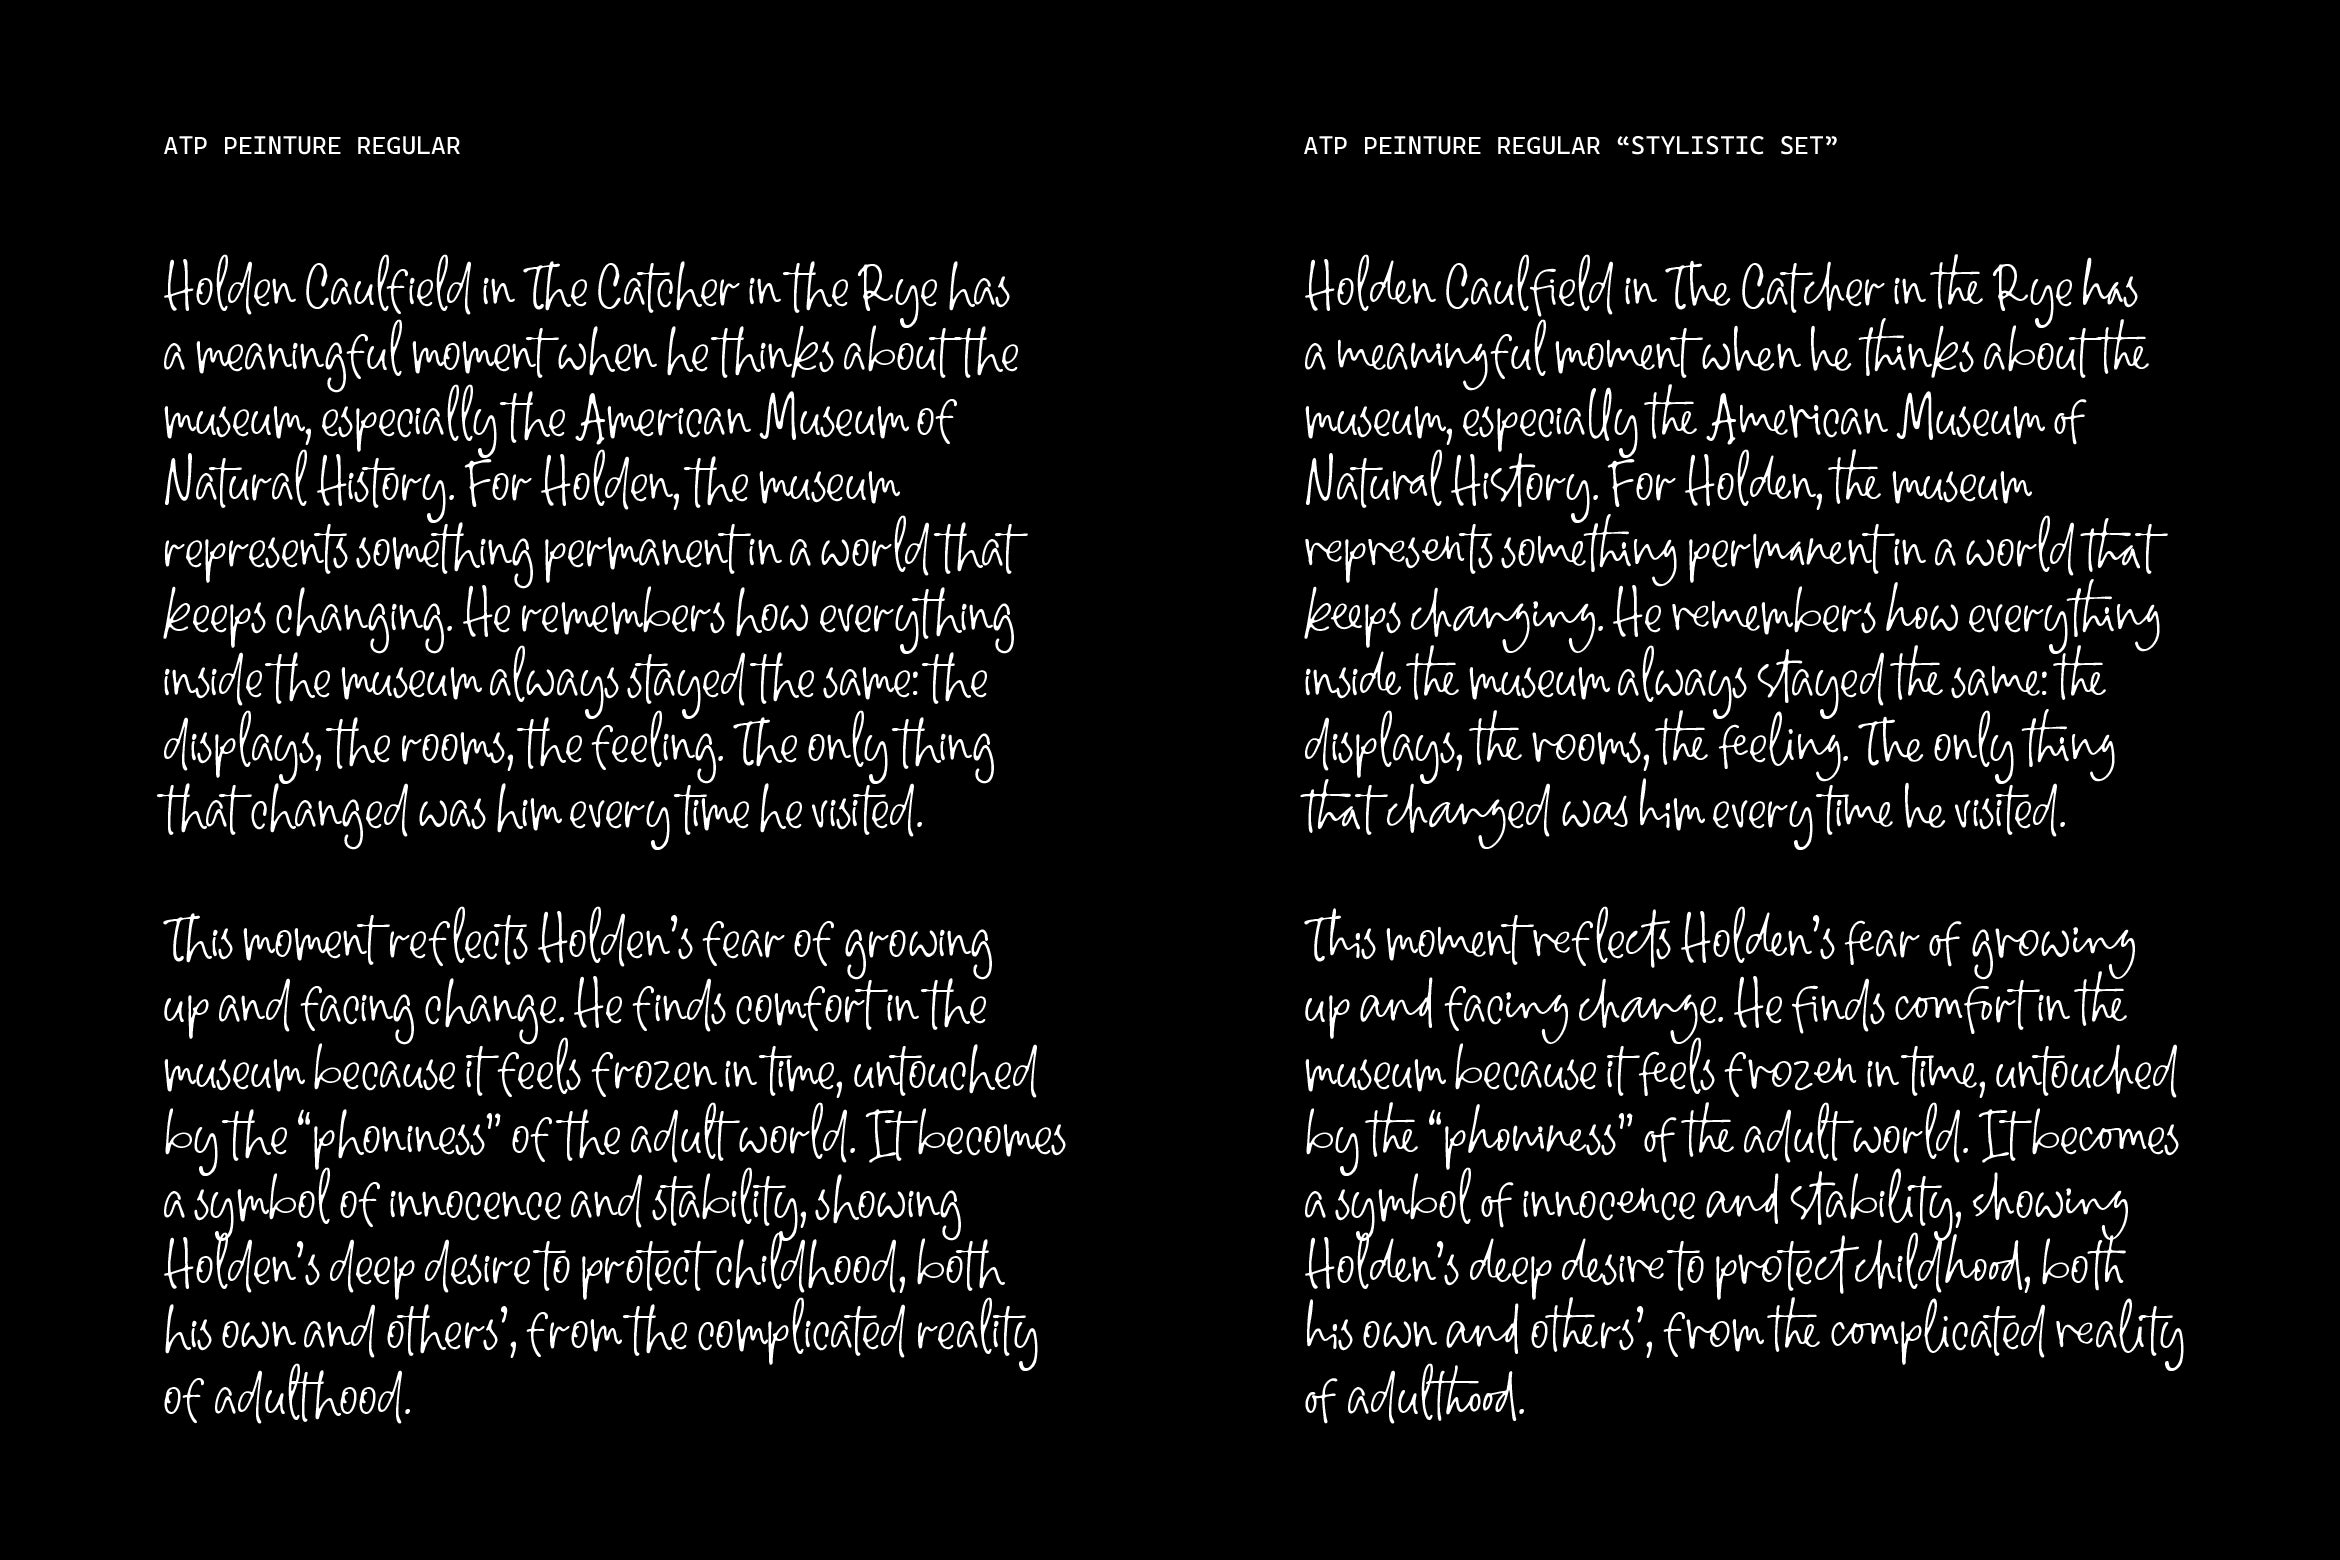 ATP PEINTURE REGULAR
Holden Caulfield in The Catcher in the Rye has
a meaningful moment when he thinks about the
museum, especially the American Museum of
Natural History. For Holden, the museum
represents something permanent in a world that
keeps changing. He remembers how everything
inside the museum always stayed the same: the
displays, the rooms, the feeling. The only thing
that changed was him every time he visited.
This moment reflects Holden’s fear of growing
up and facing change. He finds comfort in the
museum because it feels frozen in time, untouched
by the “phoniness” of the adult world. It becomes
a symbol of innocence and stability, showing
Holden’s deep desire to protect childhood, both
his own and others’, from the complicated reality
of adulthood.
ATP PEINTURE REGULAR “STYLISTIC SET”
Holden Caulfield in The Catcher in the Rye has
a meaningful moment when he thinks about the
museum, especially the American Museum of
Natural History. For Holden, the museum
represents something permanent in a world that
keeps changing. He remembers how everything
inside the museum always stayed the same: the
displays, the rooms, the feeling. The only thing
that changed was him every time he visited.
This moment reflects Holden’s fear of growing
up and facing change. He finds comfort in the
museum because it feels frozen in time, untouched
by the “phoniness” of the adult world. It becomes
a symbol of innocence and stability, showing
Holden’s deep desire to protect childhood, both
his own and others’, from the complicated reality
of adulthood.